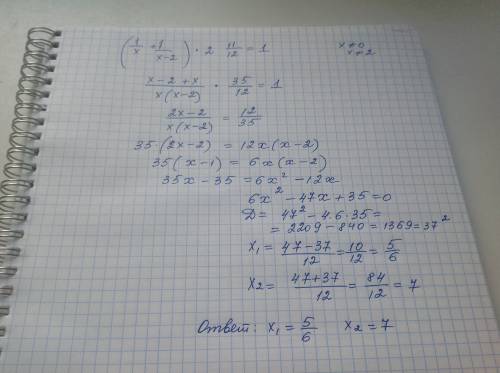 (1/x + 1/(x-2)) · 2 11/12 = 1    x ≠ 0
x ≠ 2
(x-2+x)/(x(x-2)) · 35/12 = 1
(2x-2)/(x(x-2)) = 12/35
35(2x-2) = 12x(x-2)
35(x-1) = 6x(x-2)
35x-35 = 6x² - 12x
6x² - 47x + 35 = 0
D = 47² - 4·6·35 =
= 2209 - 840 = 1369 = 37²
x₁ = (47-37)/12 = 10/12 = 5/6
x₂ = (47+37)/12 = 84/12 = 7
Ответ: x₁ = 5/6    x₂ = 7